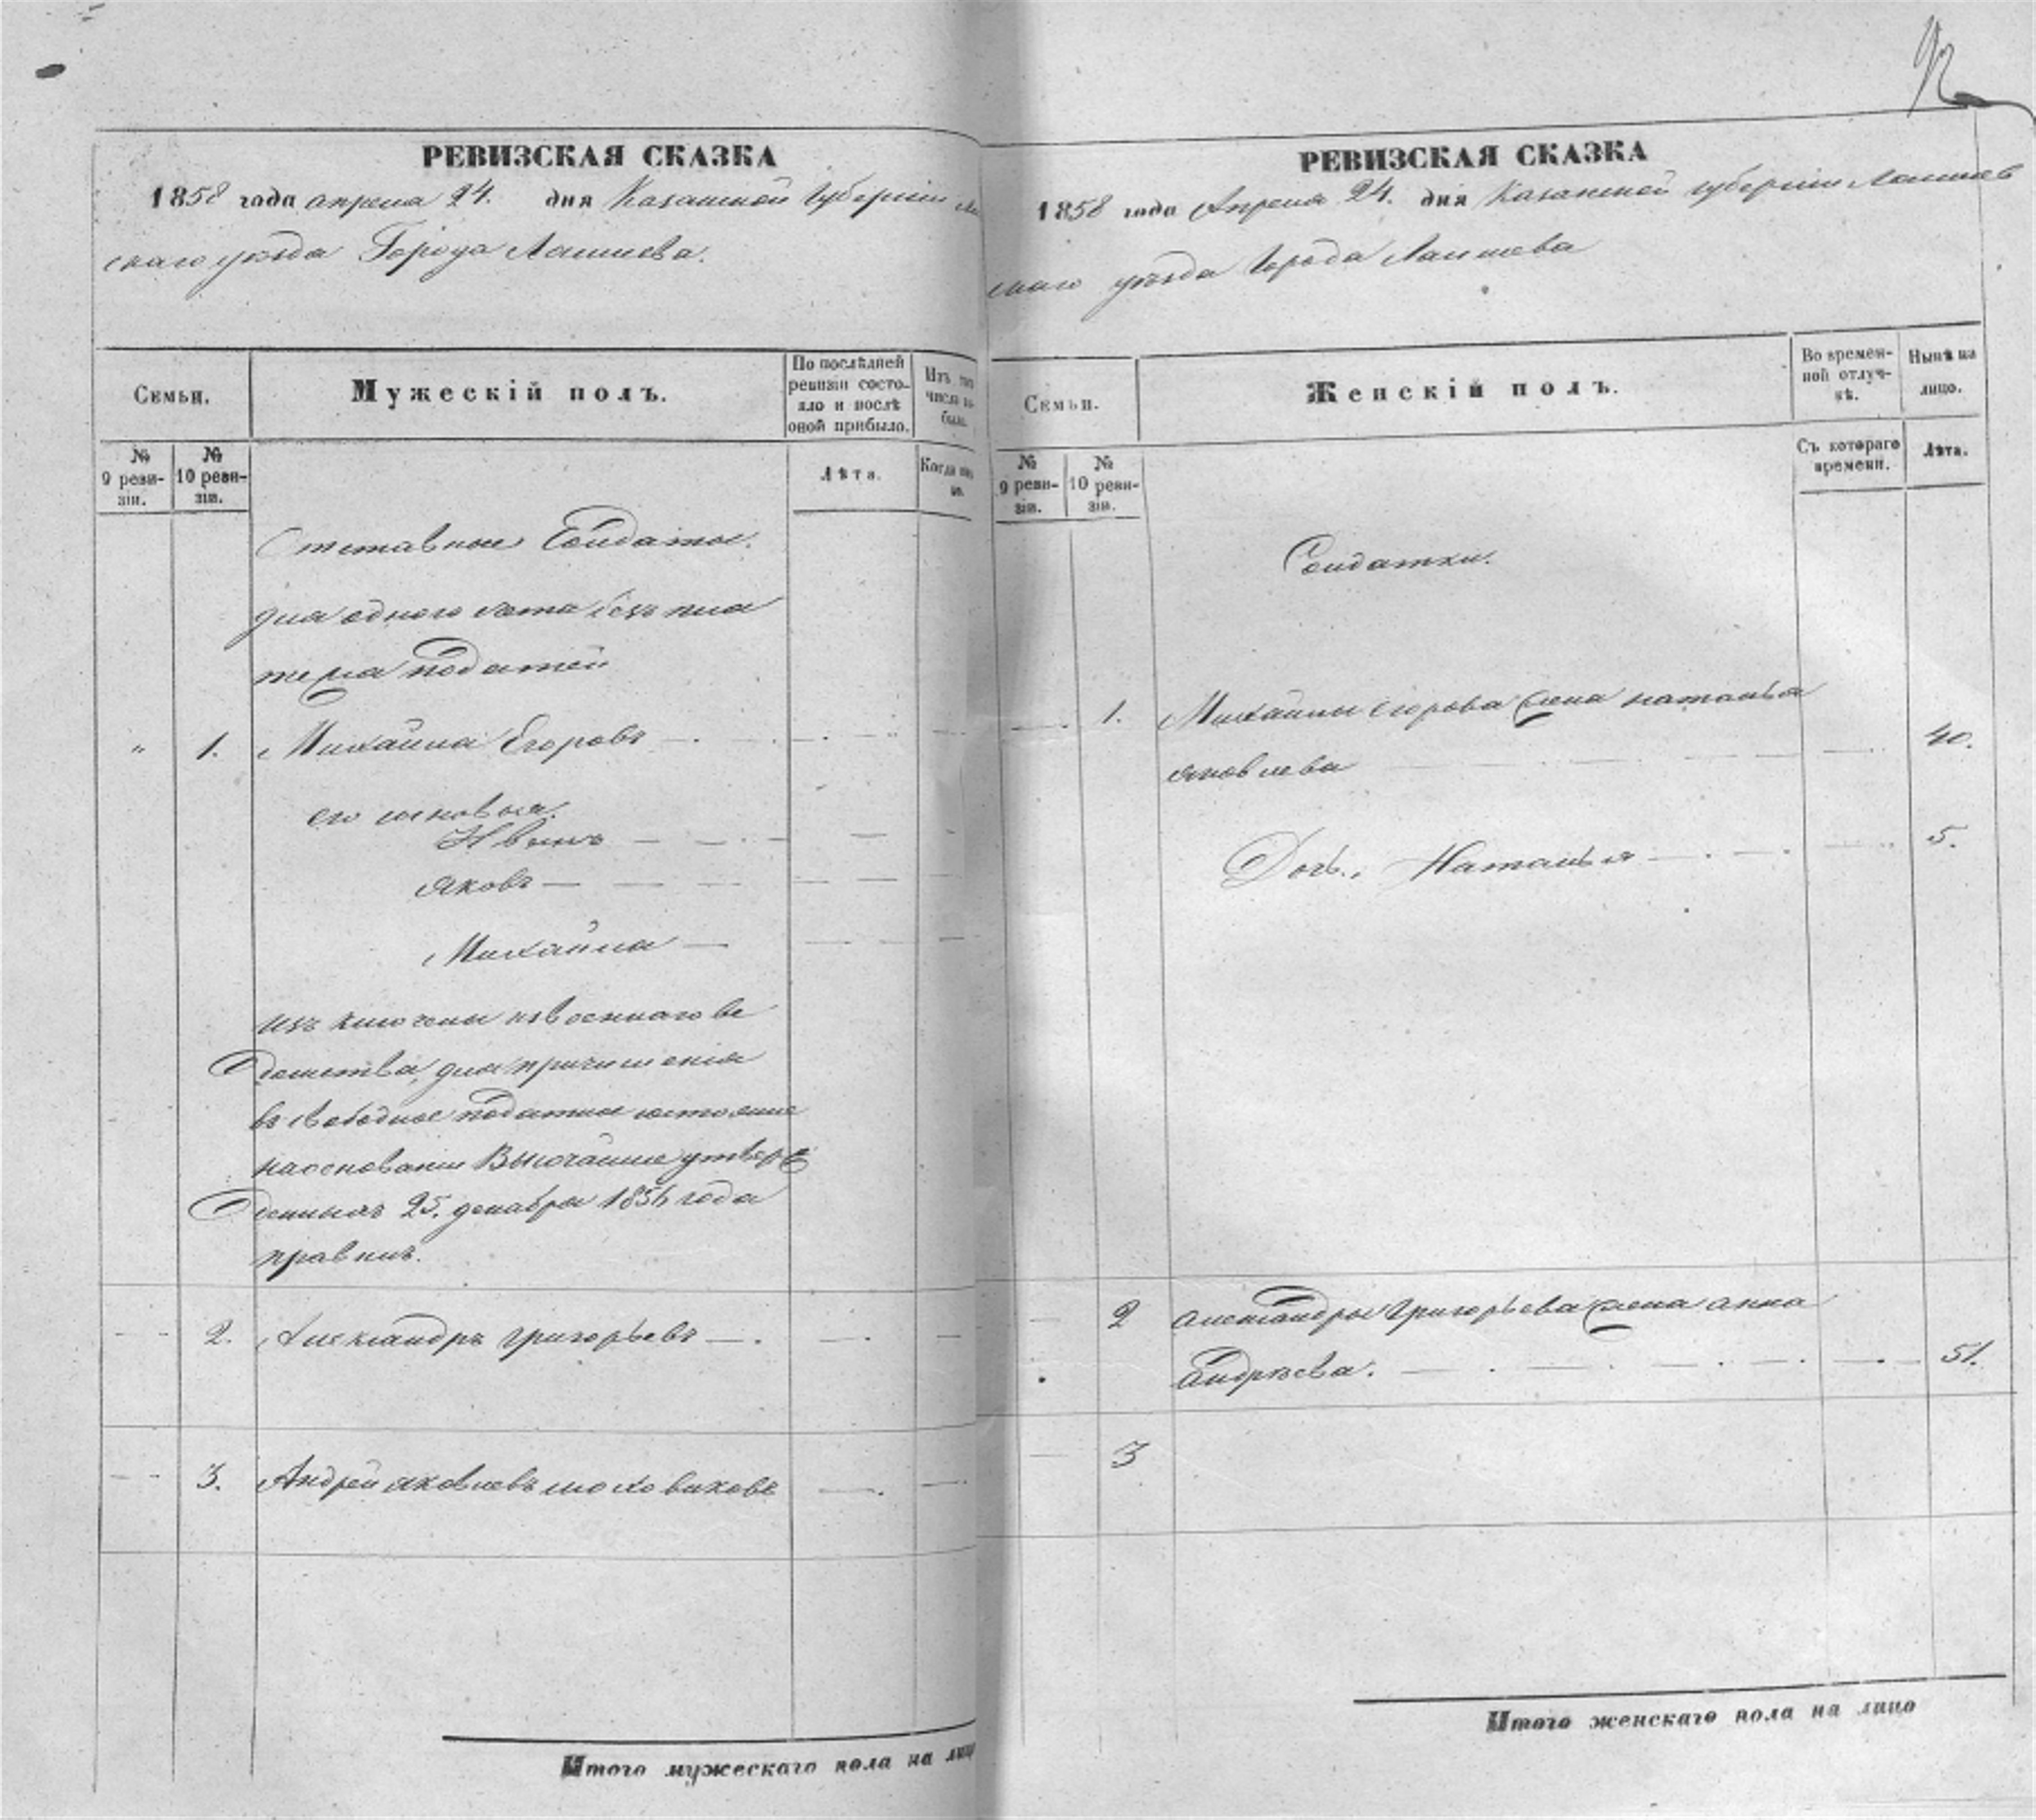 92
РЕВИЗСКАЯ СКАЗКА
1858 года апреля 24. дня Казанской Губернiи Ла
скаго уѣзда Города Лаишева.
Семьи.
Мужескiй полъ.
По послѣдней
ревизiи состо-
яло и послѣ
оной прибыло.
Изъ того
числа вы-
было.
№
9 реви-
зiи.
№
10 реви-
зiи.
Лѣта.
Когда им
но.
Отставные Солдаты.
для одного счета безъ пла
тежа податей
" 1. Михайла Егоровъ
его сыновья:
Иванъ
Яковъ
Михайла
изключены изъ военнаго ве
домства, для причисленiя
въ свободное податное состоянiе
на основанiи Высочайше утверж
денныхъ 25. декабря 1856 года
правилъ.
2. Александръ Григорьевъ
3. Андрей Яковлевъ
Итого мужескаго пола на лицо
РЕВИЗСКАЯ СКАЗКА
1858 года Апреля 24. дня Казанской губернiи Лаишев
скаго уѣзда Города Лаишева
Семьи.
Женскiй полъ.
Во времен-
ной отлуч-
кѣ.
Нынѣ на
лицо.
№
9 реви-
зiи.
№
10 реви-
зiи.
Съ котораго
времени.
Лѣта.
Солдатки.
1. Михайлы Егорова жена Наталья
Яковлева 40.
Дочь, Наталья 5.
2 Александры Григорьева жена Анна
Андрѣева. 51.
3
Итого женскаго пола на лицо